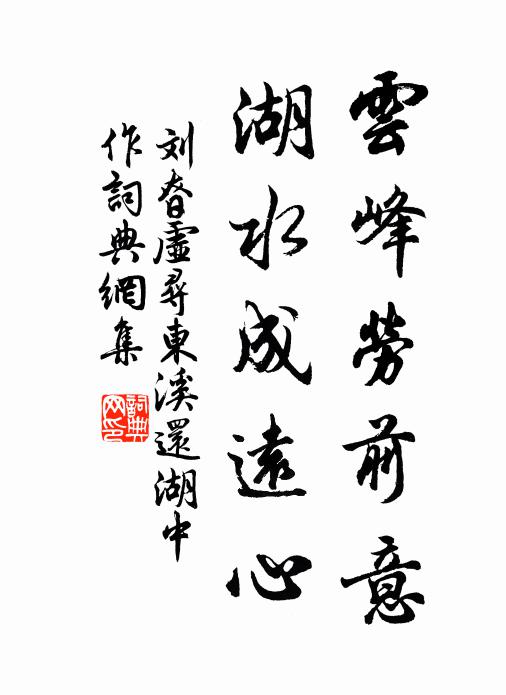 雲峰勞前意
湖水成遠心
刘眘虛尋東溪還湖中
作詞典網集
詞典
网印